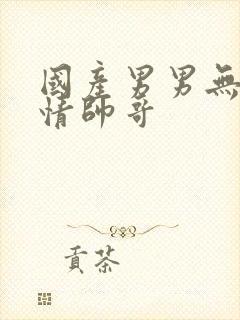 國產男男無
情帥哥
貢茶